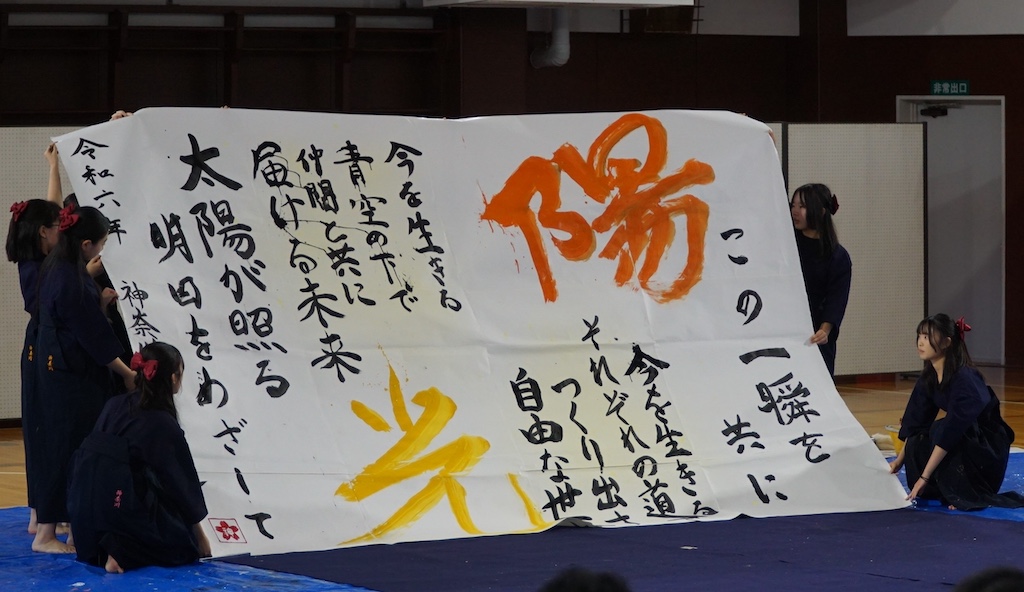 非常出口
この一瞬を
共に
陽
今を生きる
それぞれの道
つくり出
自由な世
光
今を生きる
青空の下で
仲間と共に
届ける未来
太陽が照る
明日をめざして
令和六年
神奈